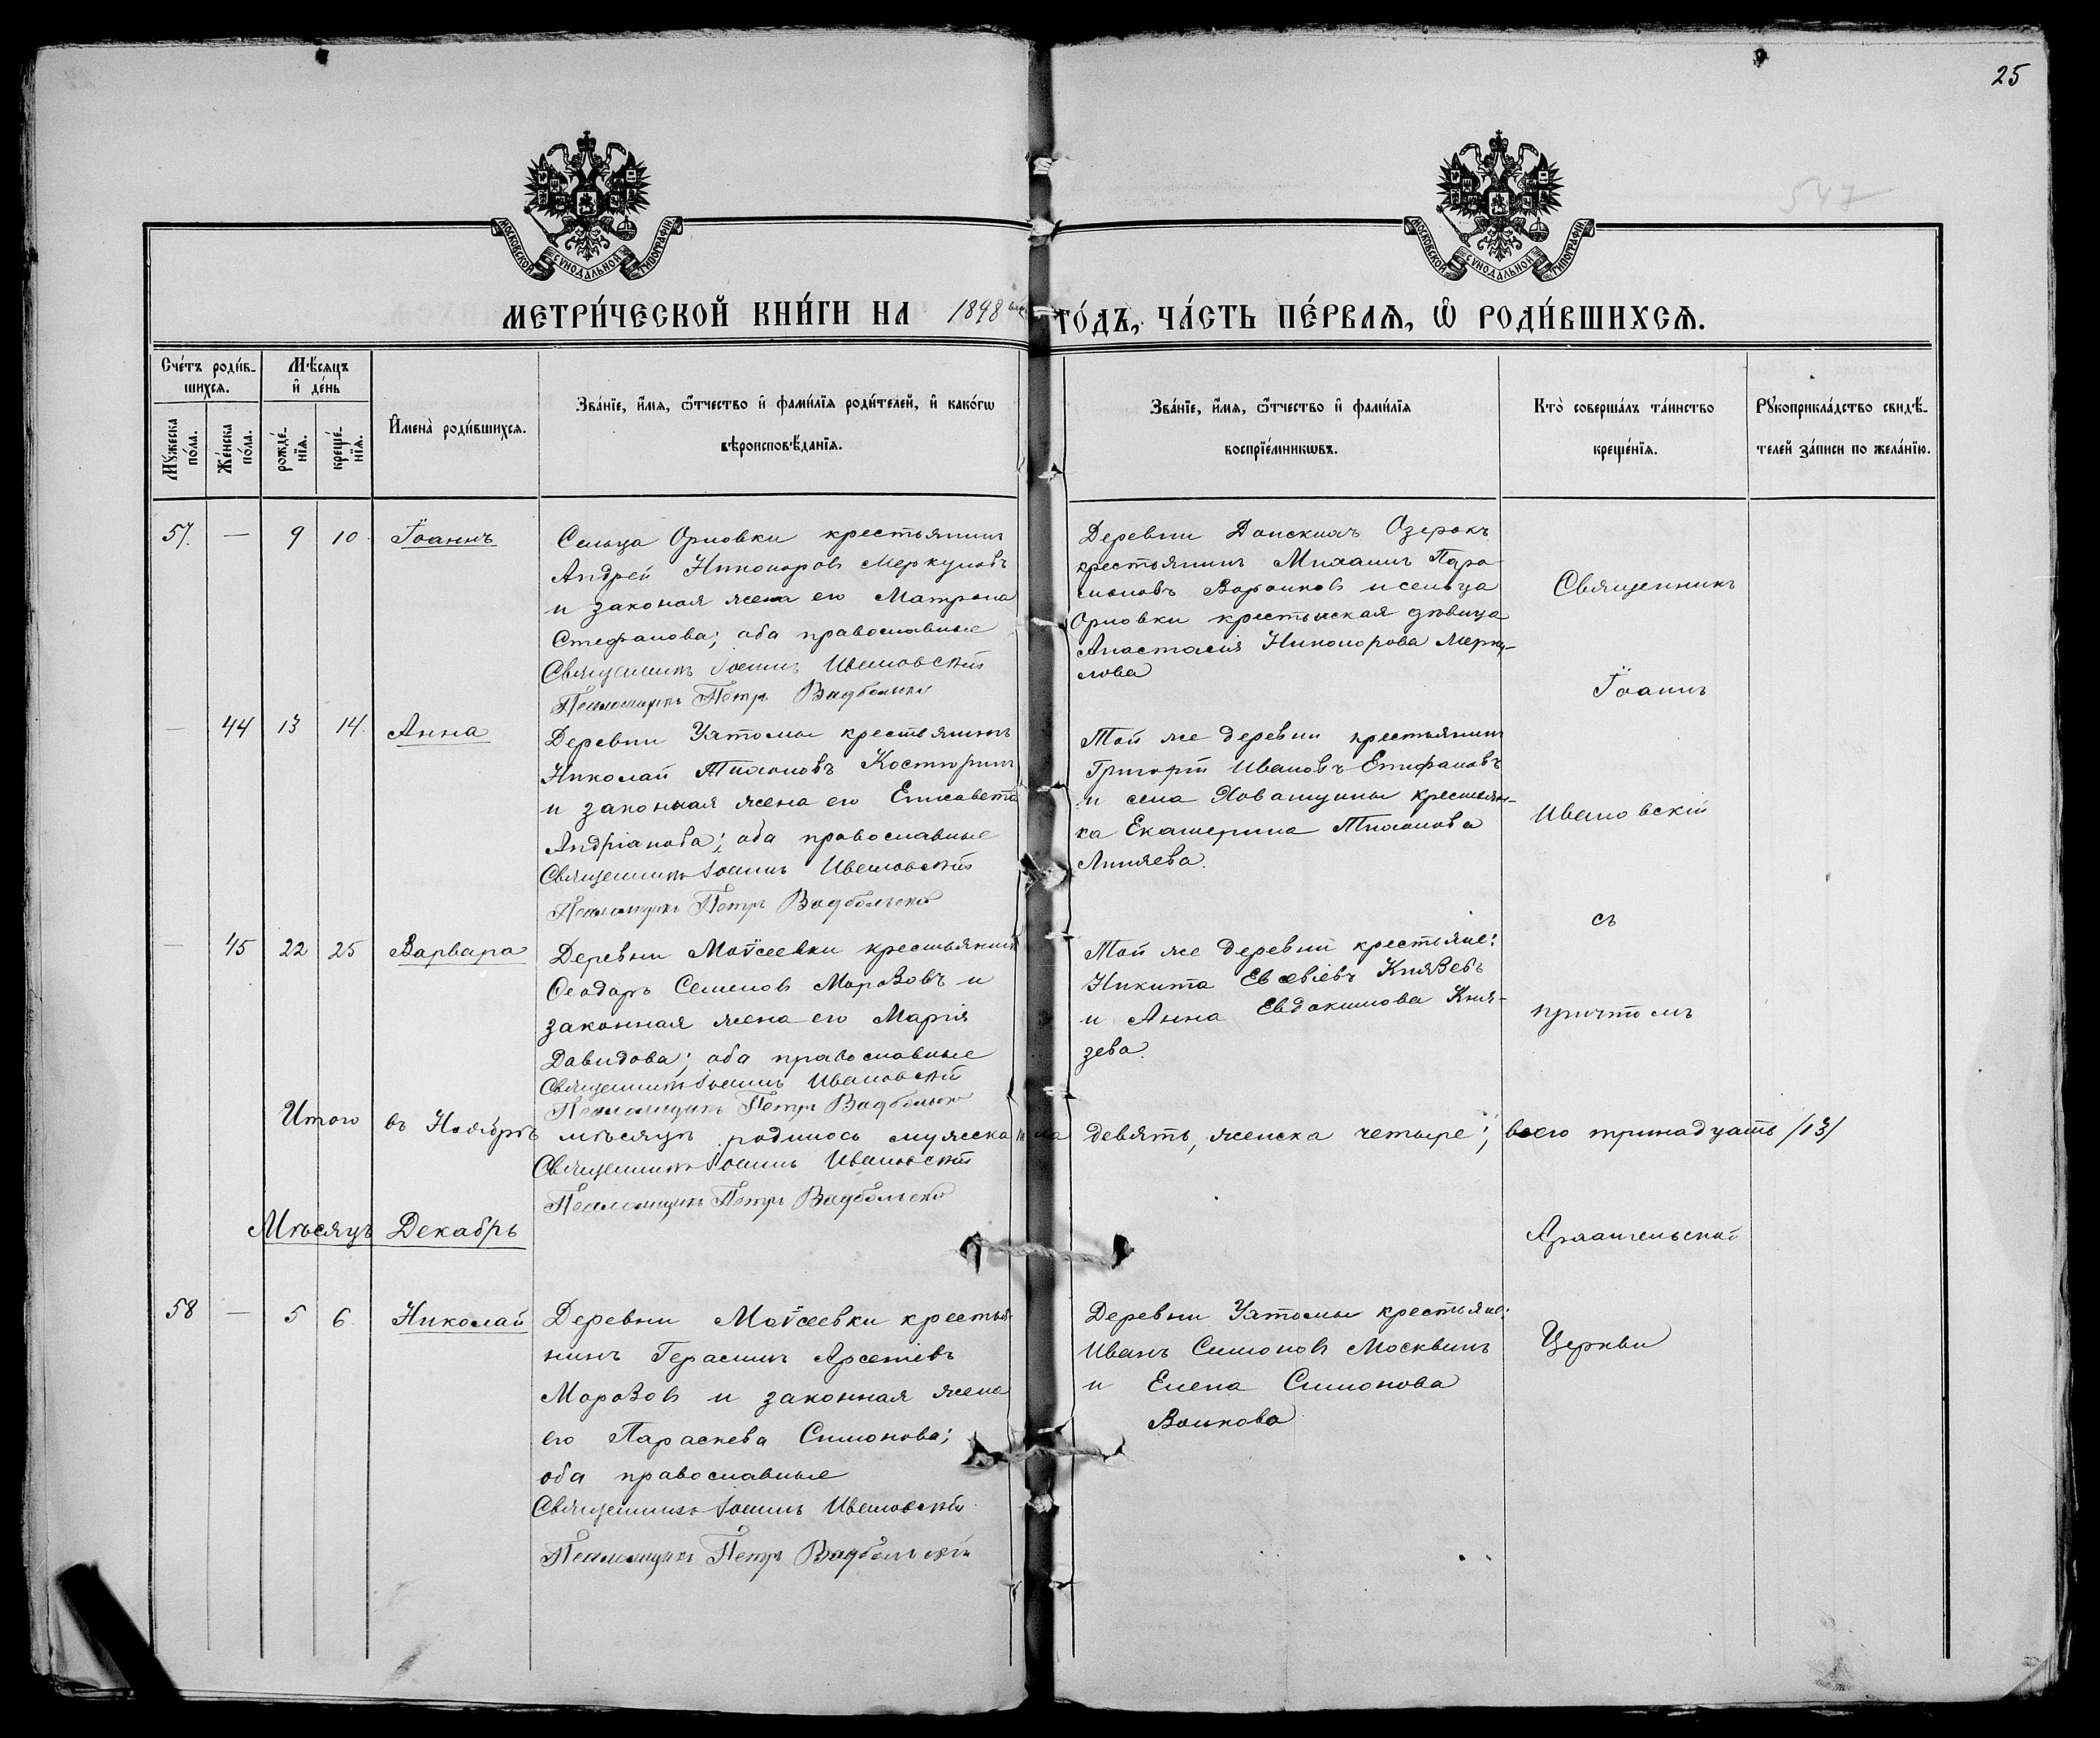 25
547
МОСКОВСКОЙ СѴНОДАЛЬНОЙ ТИПОГРАФІИ.
МОСКОВСКОЙ СѴНОДАЛЬНОЙ ТИПОГРАФІИ.
МЕТРИ́ЧЕСКОЙ КНИ́ГИ НА 1898 ГО́ДЪ, ЧА́СТЬ ПЕ́РВАѦ, Ѡ҆ РОДИ́ВШИХСѦ.
Сче́тъ роди́в-
шихсѧ.
Мꙋ́жеска
по́ла.
Же́нска
по́ла.
Мѣ́сѧцъ
и҆ де́нь
рожде́-
нїѧ.
креще́-
нїѧ.
И҆мена̀ роди́вшихсѧ.
Зва́нїе, и҆́мѧ, ѻ҆́тчество и҆ фами́лїѧ роди́телей, и҆ како́гѡ
вѣроисповѣ́данїѧ.
Зва́нїе, и҆́мѧ, ѻ҆́тчество и҆ фами́лїѧ
воспрїе́мникѡвъ.
Кто̀ соверша́лъ та́инство
креще́нїѧ.
Рꙋкоприкла́дство свидѣ́-
телей за́писи по жела́нїю.
57. — 9 10. Іоаннъ
Сельца Орловки крестьянинъ
Андрей Никоноровъ Меркуловъ
и законая жена его Матрона
Стефанова; оба православные
Священникъ Іоаннъ Ивановскій
Псаломщикъ Петръ Вадбольскій
Деревни Донскихъ Озерокъ
крестьянинъ Михаилъ Пара
моновъ Воронковъ и сельца
Орловки крестьнская дѣвица
Анастасія Никонорова Мерку-
лова
— 44 13 14. Анна
Деревни Ухтомы крестьянинъ
Николай Тихоновъ Костюринъ
и законная жена его Елисавета
Андріанова; оба православные
Священникъ Іоаннъ Ивановскій
Псаломщикъ Петръ Вадбольскій
Той же деревни крестьянинъ
Григорій Ивановъ Епифановъ
и села Хованщины крестьян-
ка Екатерина Тихонова
Линяева.
— 45 22 25 Варвара
Деревни Моѵсеевки крестьянинъ
Ѳеодоръ Семеновъ Морозовъ и
законная жена его Марія
Давидова; оба православные
Священникъ Іоаннъ Ивановскій
Псаломщикъ Петръ Вадбольскій
Той же деревни крестьяне:
Никита Евсевіевъ Князевъ
и Анна Евдокимова Кня-
зева.
Итого въ Ноябрѣ мѣсяцѣ родилось мужска пола девять, женска четыре; всего тринадцать /13/
Священникъ Іоаннъ Ивановскій
Псаломщикъ Петръ Вадбольскій
Мѣсяцъ Декабрь
58 — 5 6. Николай
Деревни Моѵсеевки крестья-
нинъ Герасимъ Арсеніевъ
Морозовъ и законная жена
его Параскева Симонова;
оба православные
Священникъ Іоаннъ Ивановскій
Псаломщикъ Петръ Вадбольскій
Деревни Ухтомы крестьяне:
Иванъ Симоновъ Москвинъ
и Елена Симонова
Волкова
Священникъ
Іоаннъ
Ивановскій
съ
причтомъ
Архангельской
Церкви